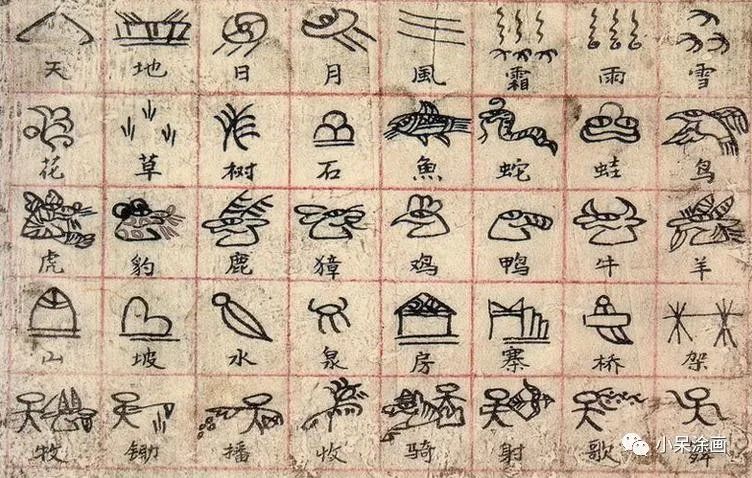 天 地 日 月 風 霜 雨 雪
花 草 树 石 魚 蛇 蛙 鸟
虎 豹 鹿 獐 鸡 鸭 牛 羊
山 坡 水 泉 房 寨 桥 架
牧 锄 播 收 骑 射 歌 舞
小呆涂画